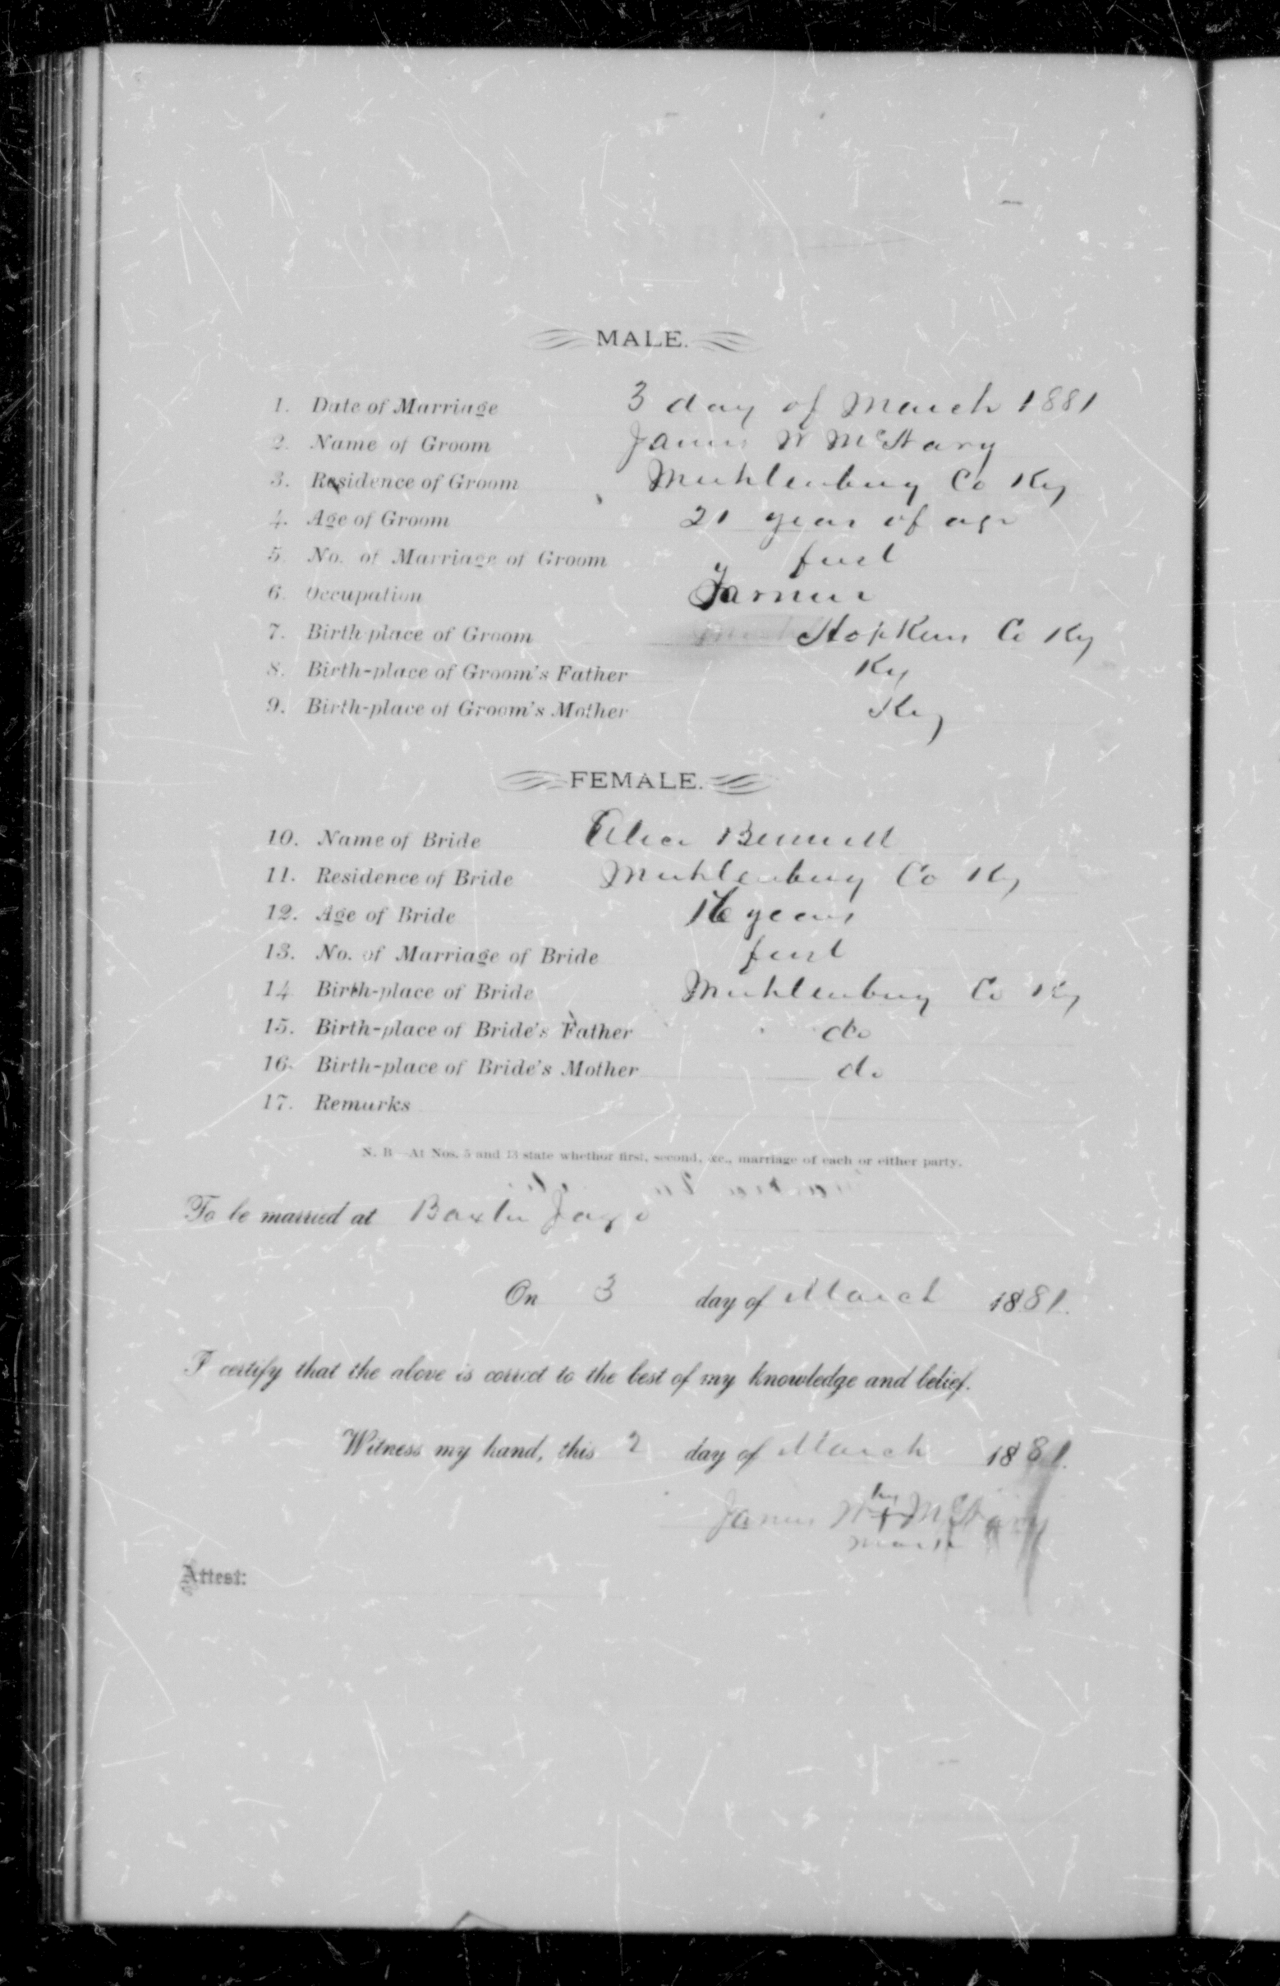 MALE.
1. Date of Marriage 3 day of March 1881
2. Name of Groom James W McNary
3. Residence of Groom Muhlenburg Co Ky
4. Age of Groom 21 years of age
5. No. of Marriage of Groom first
6. Occupation Farmer
7. Birth-place of Groom Hopkins Co Ky
8. Birth-place of Groom's Father Ky
9. Birth-place of Groom's Mother Ky
FEMALE.
10. Name of Bride Alice Bennett
11. Residence of Bride Muhlenburg Co Ky
12. Age of Bride 16 years
13. No. of Marriage of Bride first
14 Birth-place of Bride Muhlenburg Co Ky
15. Birth-place of Bride's Father do
16. Birth-place of Bride's Mother do
17. Remarks
N. B—At Nos. 5 and 13 state whether first, second, &c., marriage of each or either party.
To be married at Baxter
On 3 day of March 1881.
I certify that the above is correct to the best of my knowledge and belief.
Witness my hand, this 2 day of March 1881.
his
James W + McNary
mark
Attest: